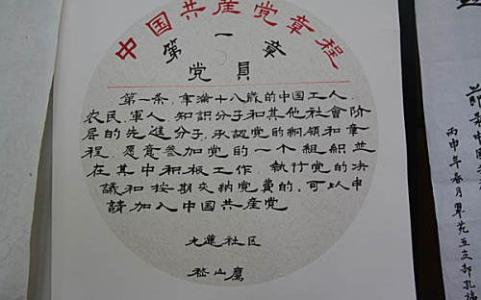 中国共産党章程
第一章
党員
第一条,年滿十八歲的中国工人、
农民、軍人、知識分子和其他社會阶
层的先進分子,承認党的綱領和章
程,愿意参加党的一个組織並
在其中积极工作、執行党的决
議和按期交納党費的,可以申
請加入中国共産党
九蓮社区
嵇山鷹
丙申年春月翠苑五支部孔